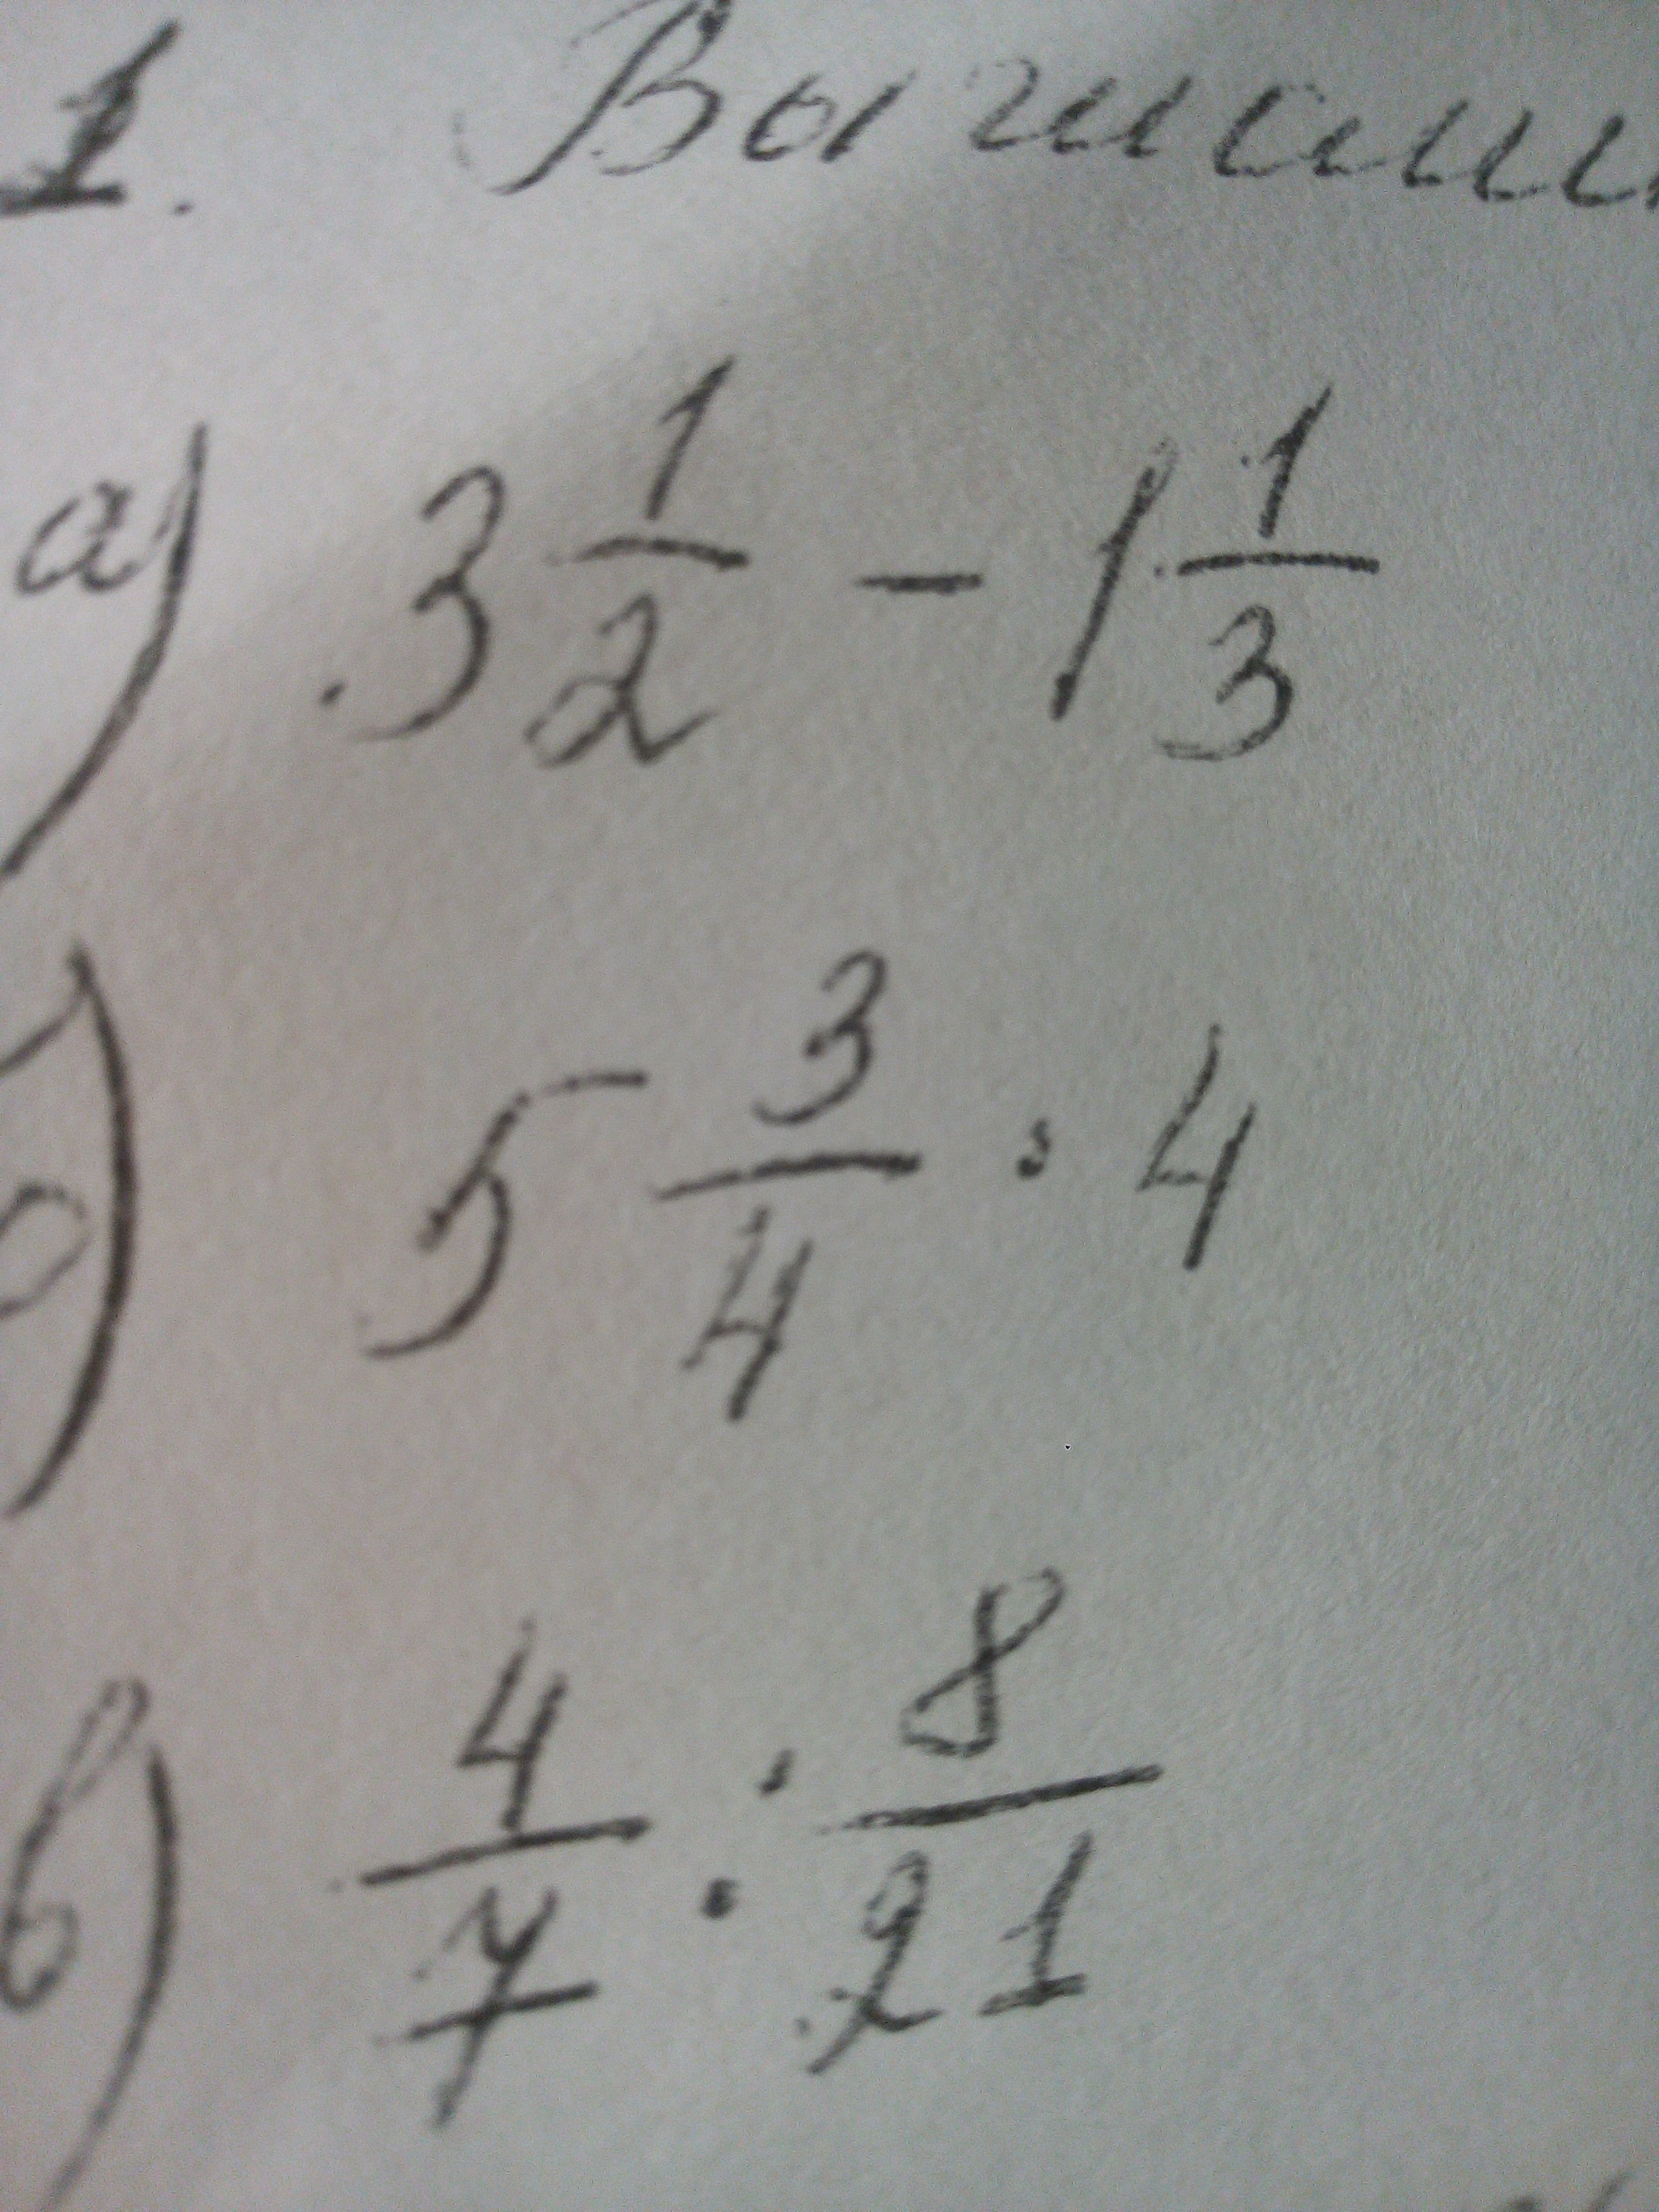 1. Вычисли
а) 3 1/2 - 1 1/3
б) 5 3/4 : 4
в) 4/7 : 8/21